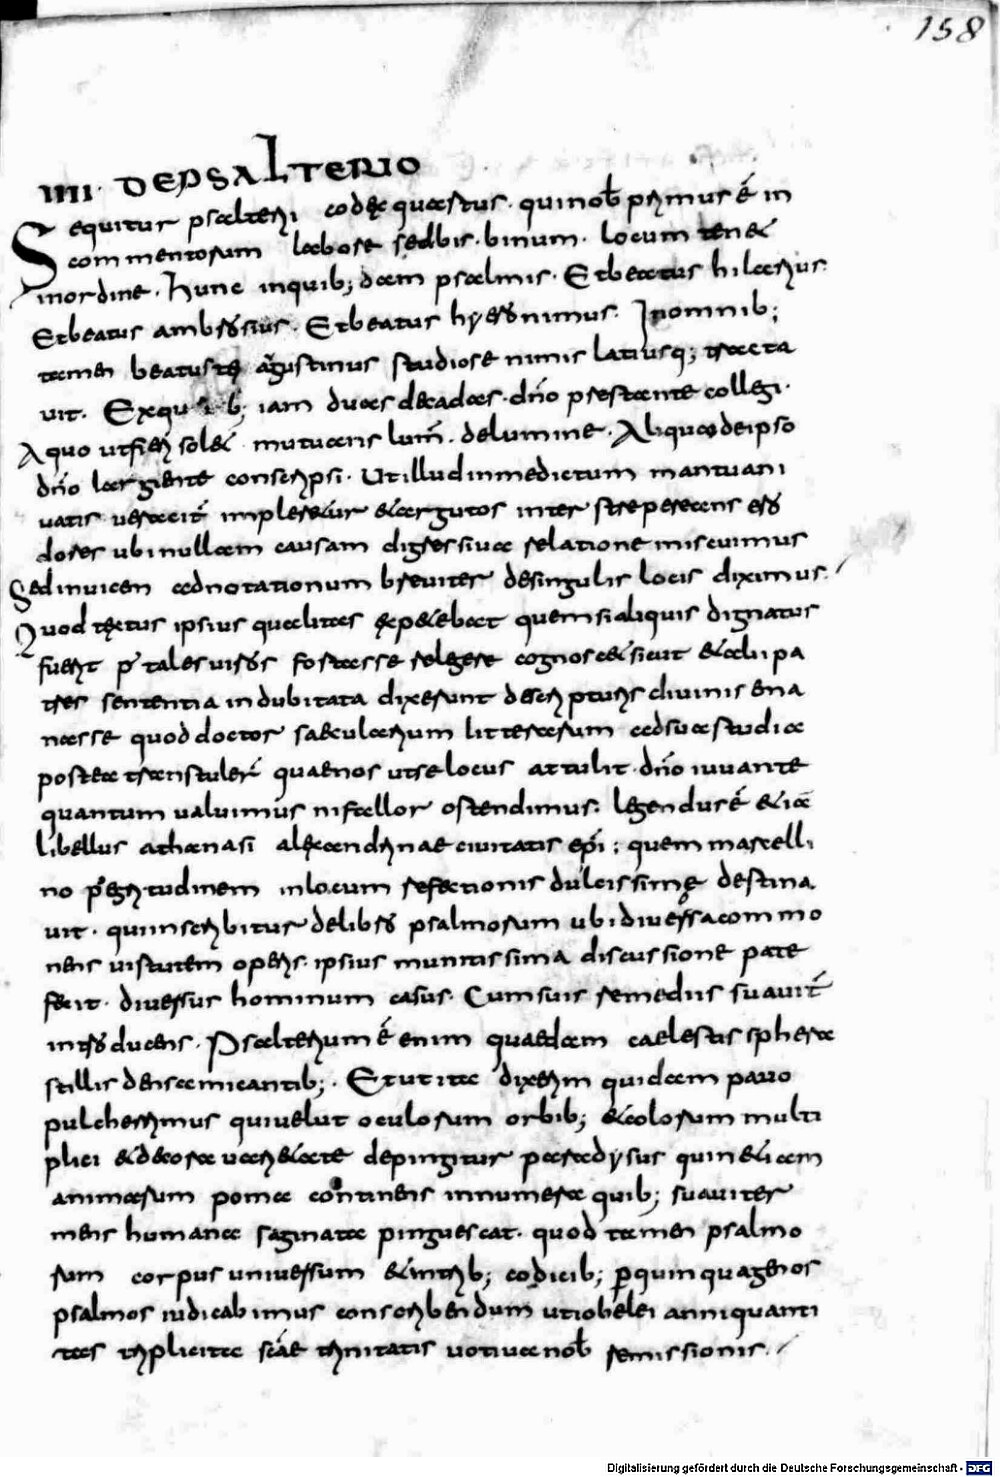 158
IIII· DE PSALTERIO
Sequitur psalterii codex quartus· qui nob̄ primus ē in
commentorum labore sed bis· binum· locum tenet
in ordine· Hunc in quib; dam psalmis· Et beatus hilarius·
Et beatus ambrosius· Et beatus hyeronimus· In omnib;
tamen beatus tę āgustinus studiose nimis latiusq; tracta
vit· Ex quib; iam duas decadas· dn̄o prestante collegi·
A quo ut fieri solet mutuans lum̄· de lumine· Aliqua de ipso
dn̄o largiente conscripsi· Ut illud in me dictum mantuani
vatis veracit̄ impleretur et argutos inter strepere ans ero
dores ubi nullam causam digressiva relatione miscuimus
Sed in vicem adnotationum breviter de singulis locis diximus·
Quod textus ipsius qualitas expetebat quem si aliquis dignatus
fuerit p̄ tales viros fortasse relegere cognoscet sicut et alii pa
tres sententia indubitata dixerunt de scripturis divinis ema
nasse quod doctor saecularium litterarum ad sua studia
postea transtuler̄ quae nos ut se locus attulit· dn̄o iuvante
quantum valuimus ni fallor ostendimus· legendus ē etiā
libellus athanasii alexandrinae civitatis ep̄i; quem marcelli
no p̄ egritudinem in locum refectionis dulcissimę destina
vit· qui inscribitur de libro psalmorum ubi diversa commo
nens virtutem operis· ipsius muntissima discussione pate
fecit· diversus hominum casus· Cum suis remediis suavit̄
introducens· Psalterium ē enim quaedam caelestis sphera
stillis densa micantib;· Et ut ita dixerim quidam pavo
pulcherrimus qui velut oculorum orbib; et colorum multi
plici et decora varietate depingitur paradysus quin etiam
animarum poma continens innumera quib; suaviter
mens humana saginata pinguescat· quod tamen psalmo
rum corpus universum et in trib; codicib; p̄ quinquagenos
psalmos iudicabimus conscribendum ut iobelei anni quanti
tas triplicita sc̄ae trinitatis votiva nob̄ remissionis·
Digitalisierung gefördert durch die Deutsche Forschungsgemeinschaft - DFG